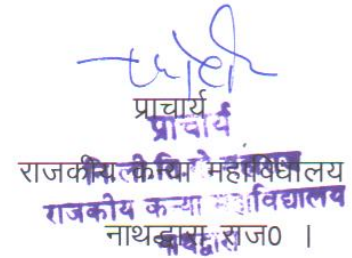 प्राचार्य
प्राचार्य
राजकीय कन्या महाविद्यालय
राजकीय कन्या महाविद्यालय
नाथद्वारा राज0 |
नाथद्वारा